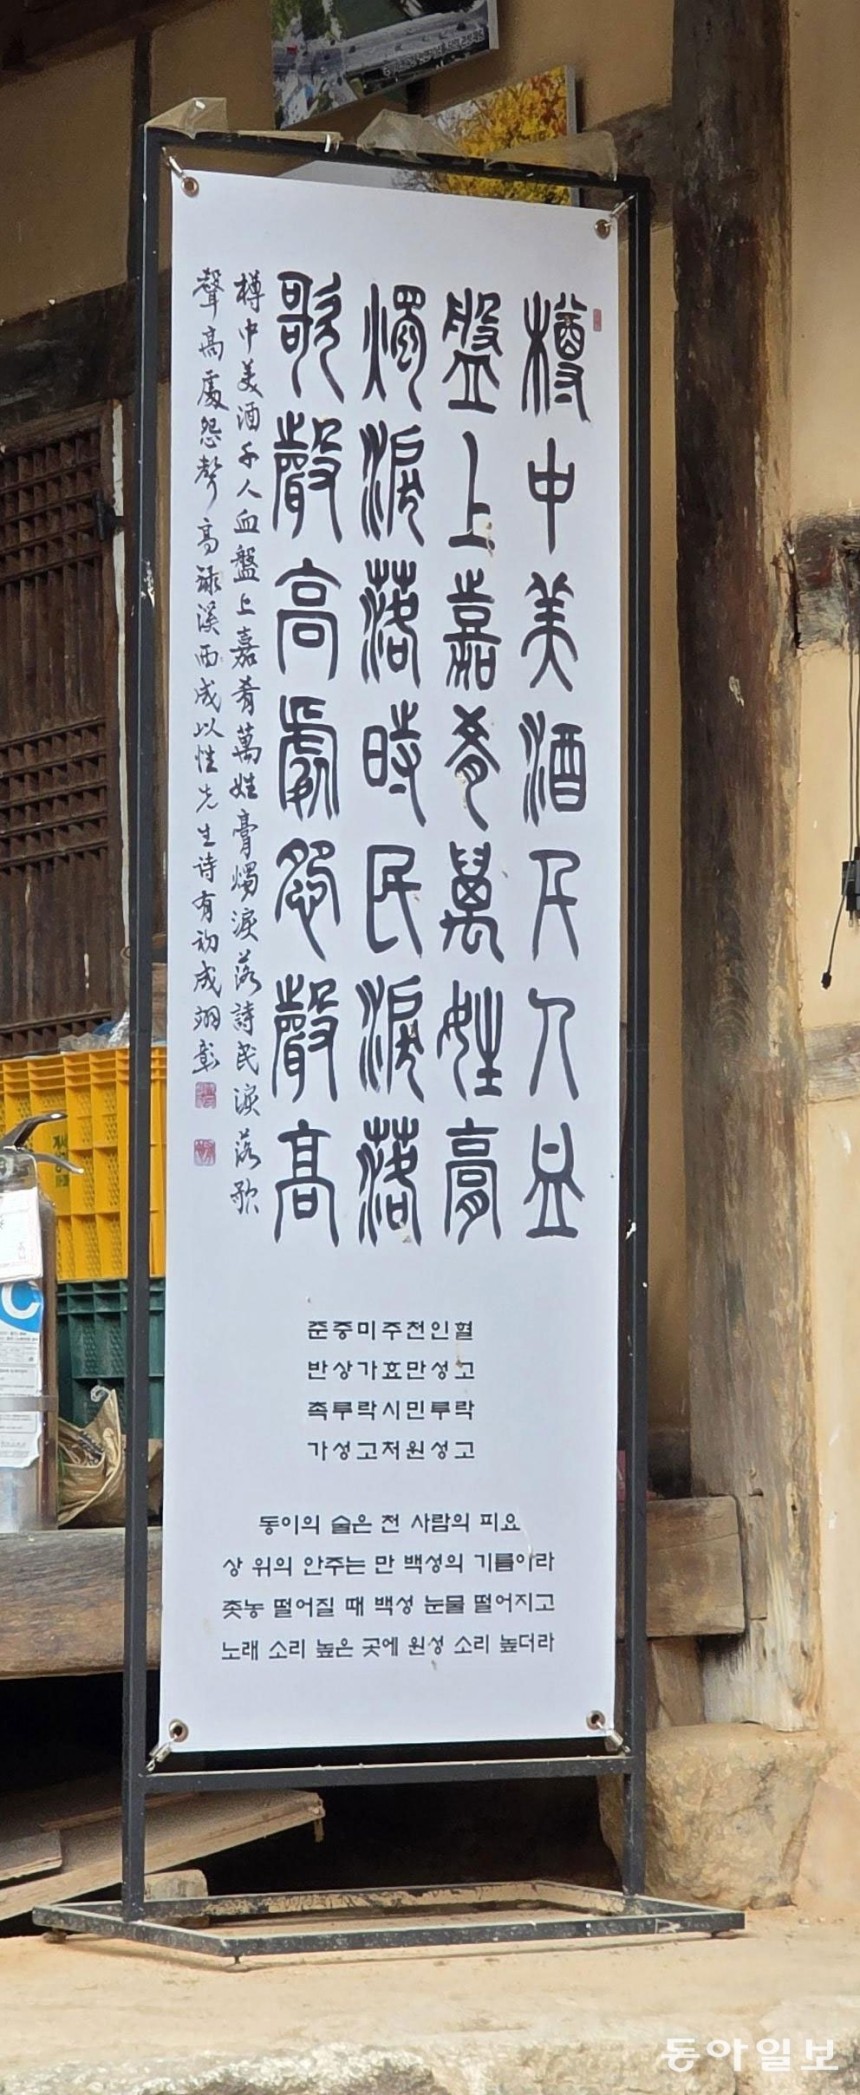 樽中美酒千人血
盤上嘉肴萬姓膏
燭淚落時民淚落
歌聲高處怨聲高
樽中美酒千人血盤上嘉肴萬姓膏燭淚落詩民淚落歌
聲高處怨聲高溪西成以性先生诗有初成翊彰
준중미주천인혈
반상가효만성고
촉루락시민루락
가성고처원성고
동이의 술은 천 사람의 피요
상 위의 안주는 만 백성의 기름이라
촛농 떨어질 때 백성 눈물 떨어지고
노래 소리 높은 곳에 원성 소리 높더라
동아일보